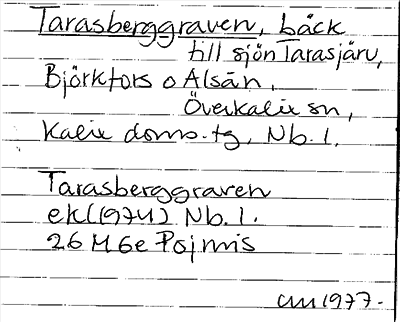 Tarasberggraven, bäck
till sjön Tarasjärv,
Björkfors o Alsån,
Överkalix sn,
Kalix doms.tg, Nb. l.
Tarasberggraven
ek (1974) Nb. l.
26 M 6e Pojnis
1977.